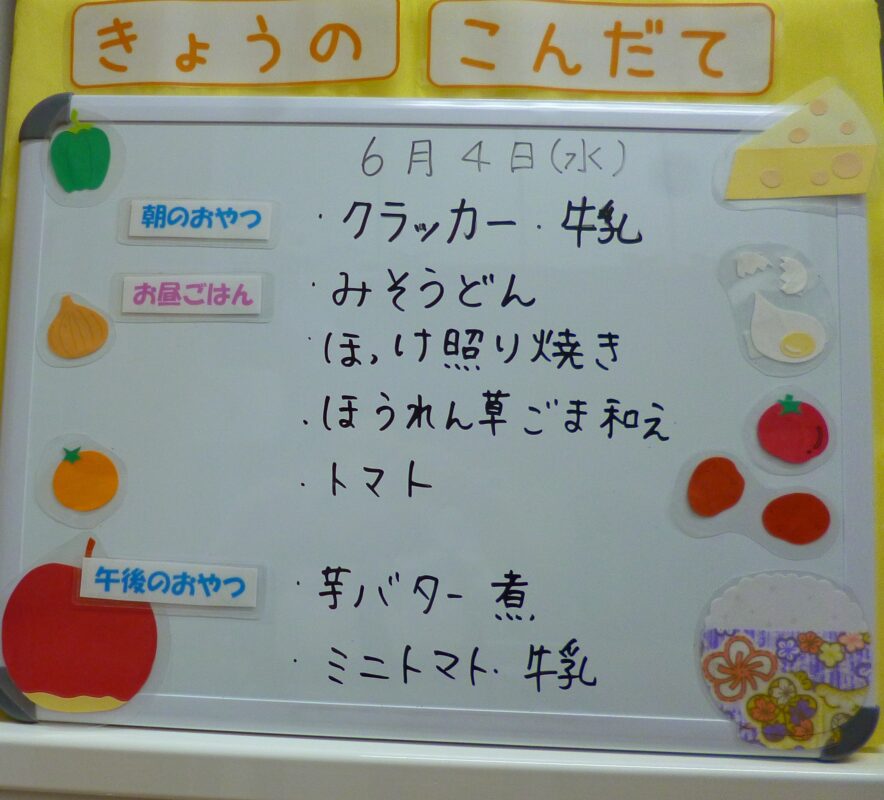 きょうの こんだて
6月4日(水)
朝のおやつ ・クラッカー・牛乳
お昼ごはん ・みそうどん
・ほっけ照り焼き
・ほうれん草ごま和え
・トマト
午後のおやつ ・芋バター煮
・ミニトマト・牛乳